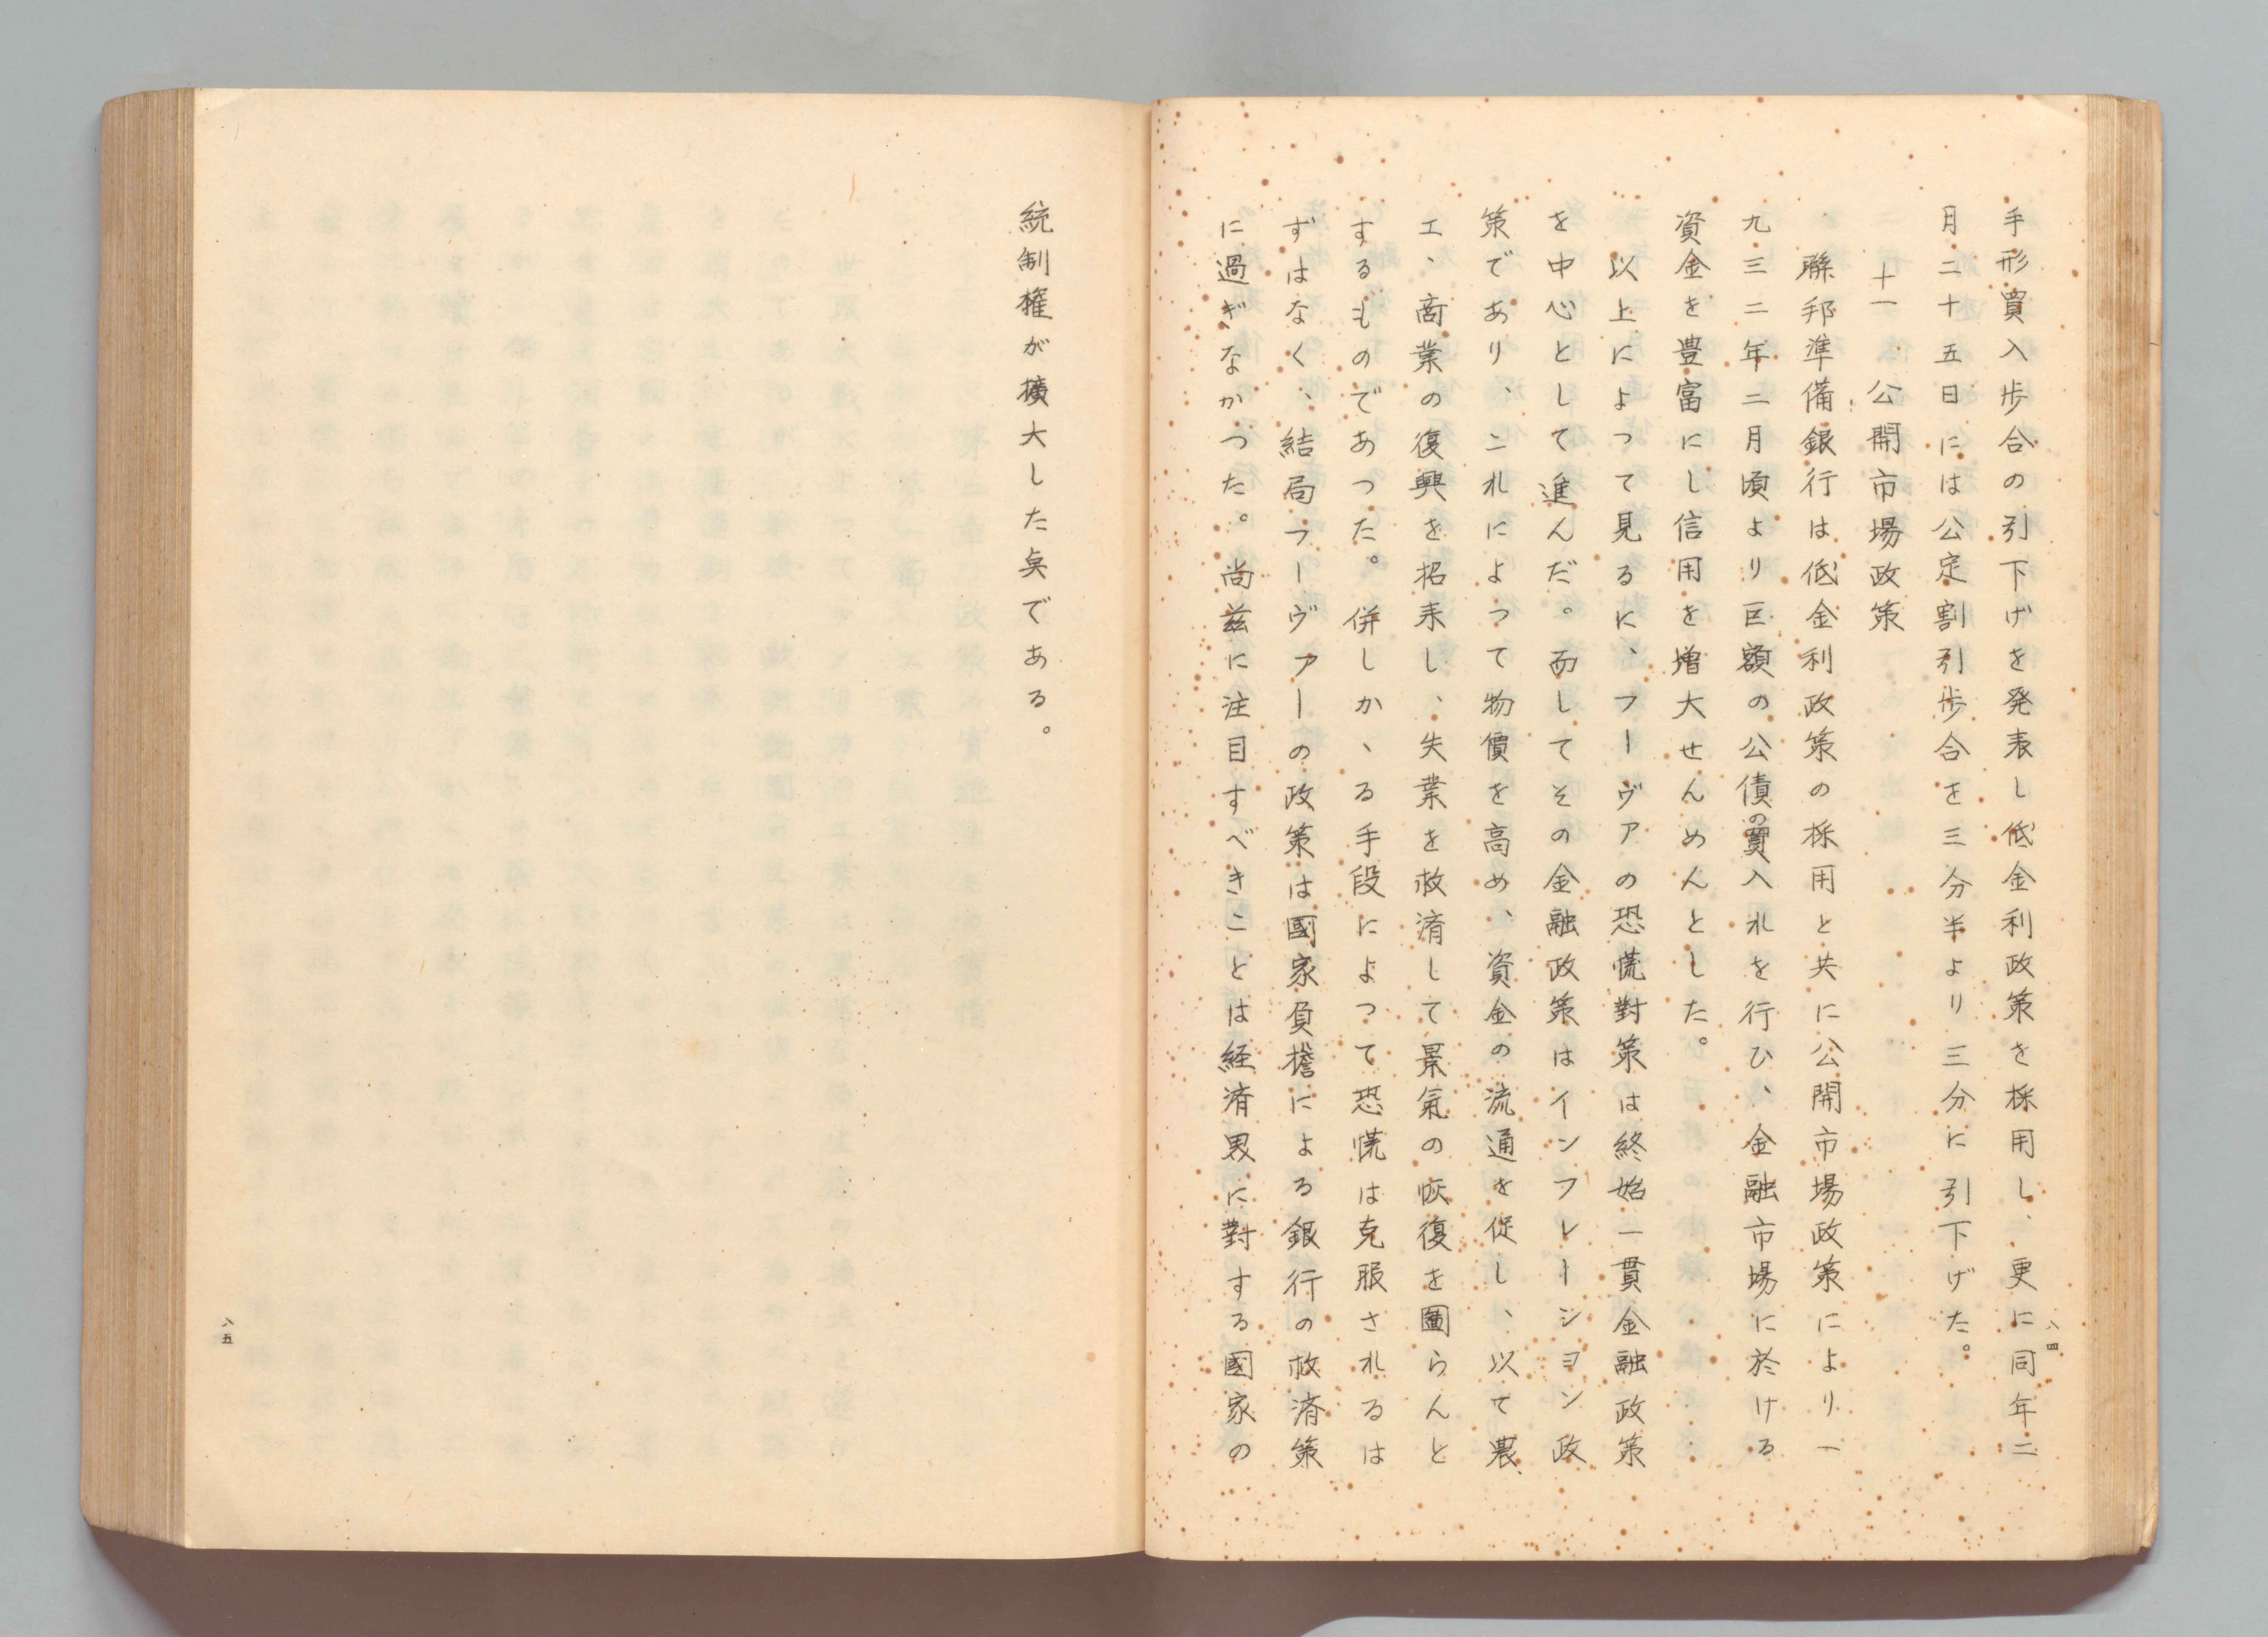 手形買入歩合の引下げを発表し低金利政策を採用し、更に同年二
月二十五日には公定割引歩合を三分半より三分に引下げた。
十一、公開市場政策
聯邦準備銀行は低金利政策の採用と共に公開市場政策により一
九三二年二月頃より巨額の公債の買入れを行ひ、金融市場に於ける
資金を豊富にし信用を増大せんめんとした。
以上によつて見るに、フーヴアの恐慌對策は終始一貫金融政策
を中心として進んだ。而してその金融政策はインフレーシヨン政
策であり、これによつて物價を高め、資金の流通を促し、以て農
工、商業の復興を招来し、失業を救済して景氣の恢復を圖らんと
するものであつた。併しかゝる手段によつて恐慌は克服されるは
ずはなく、結局フーヴアーの政策は國家負擔による銀行の救済策
に過ぎなかつた。尚茲に注目すべきことは経済界に對する國家の
八四
統制権が擴大した奌である。
八五